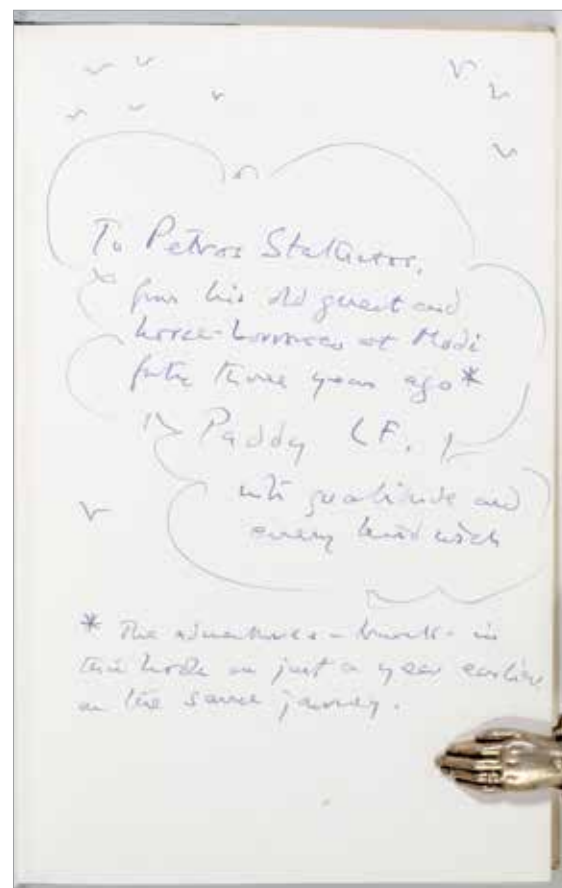 To Petros Stathatos,
from his old guest and
horse-borrower at Modi
forty three years ago*
Paddy LF.
with gratitude and
every kind wish
* The adventures - in
this book are just a year earlier
on the same journey.